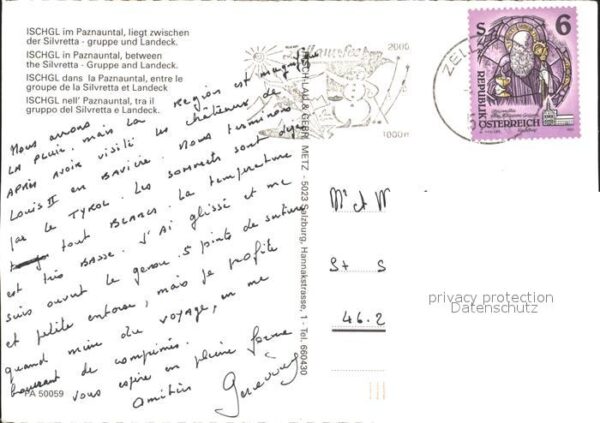 ISCHGL im Paznauntal, liegt zwischen
der Silvretta - gruppe und Landeck.
ISCHGL in Paznauntal, between
the Silvretta - Gruppe and Landeck.
ISCHGL dans la Paznauntal, entre le
groupe de la Silvretta et Landeck
ISCHGL nell' Paznauntal, tra il
gruppo del Silvretta e Landeck.
Nous avons
LA PLUIE. mais la Region est magnifique
APRÈS AVOIR visité les châteaux de
Louis II en BAVIÈRE. Nous terminons
par le TYROL. Les sommets sont déjà
tout BLANCS. La température
est très BASSE. J'AI glissé et me
suis ouvert le genou. 5 points de suture
et petite entorse, mais je profite
quand même du voyage, en me
bourrant de comprimés.
vous espère en pleine forme
Amitiés Geneviève
PA 50059
& GEBR. METZ - 5023 Salzburg, Hannakstrasse, 1 - Tel. 660430
2000
1000m
ZELL
6
REPUBLIK
ÖSTERREICH
Mr et M
St S
46.2
privacy protection
Datenschutz